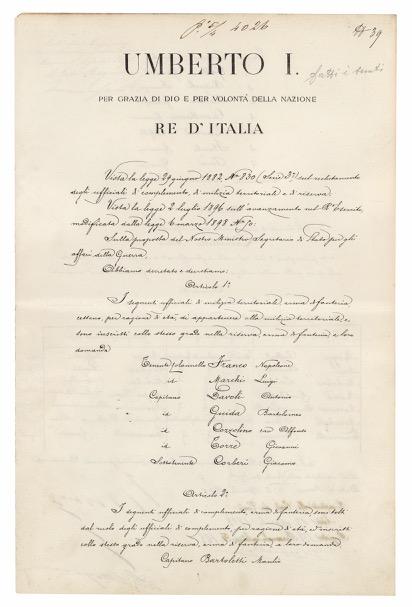 4026
39
UMBERTO I.
fatti i tenti
PER GRAZIA DI DIO E PER VOLONTÁ DELLA NAZIONE
RE D'ITALIA
Vista la legge 29 giugno 1882, N° 830 (Serie 3ª) sul reclutamento
degli ufficiali di complemento, di milizia territoriale e di riserva.
Vista la legge 2 luglio 1896 sull'avanzamento nel R° Esercito,
modificata dalla legge 6 marzo 1898 N° 50:
Sulla proposta del Nostro Ministro Segretario di Stato per gli
affari della Guerra.
Abbiamo decretato e decretiamo:
Articolo 1º
I seguenti ufficiali di milizia territoriale, arma di fanteria
cessano, per ragione di età, di appartenere alla milizia territoriale, e
sono inscritti collo stesso grado nella riserva, arma di fanteria, a loro
domanda
Tenente Colonnello Franco Napoleone
id Marchi Luigi
Capitano Savoli Antonio
id Guida Bartolomeo
id Cozzolino Alfonso
id Torre Giovanni
Sottotenente Corberi Giacomo
Articolo 2º
I seguenti ufficiali di complemento, arma di fanteria, sono tolti
dal ruolo degli ufficiali di complemento, per ragione di età, ed inscritti
collo stesso grado nella riserva, arma di fanteria, a loro domanda
Capitano Bartoletti Manlio